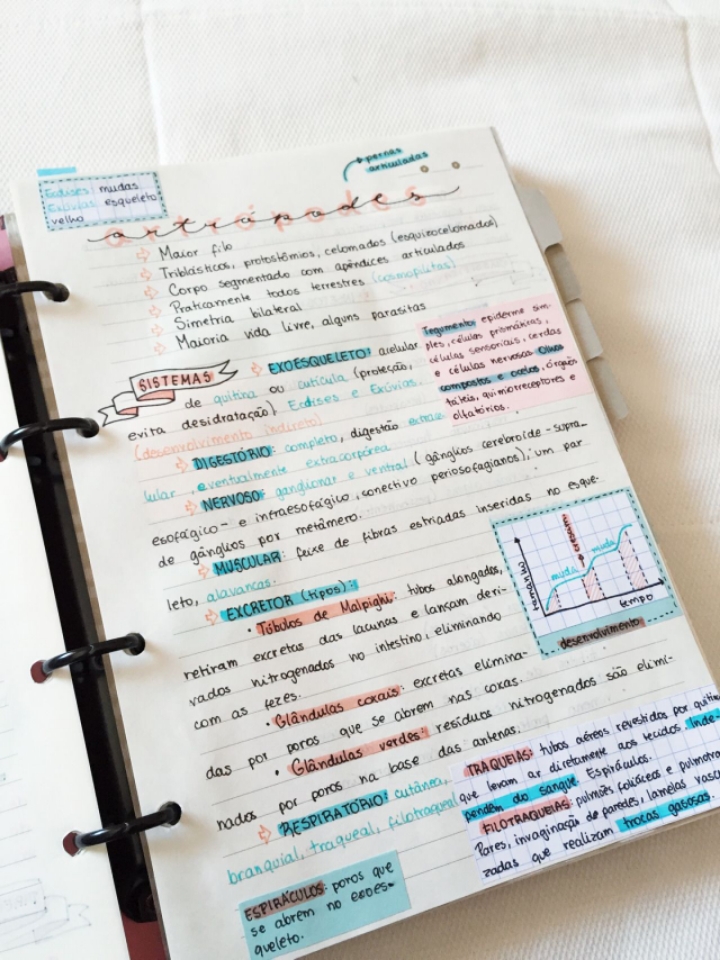 Ecdises mudas
Exúvias esqueleto
velho
pernas
articuladas
artrópodes
Maior filo
Triblásticos, protostômios, celomados (esquizocelomados)
Corpo segmentado com apêndices articulados
Praticamente todos terrestres (cosmopolitas)
Simetria bilateral
Maioria vida livre, alguns parasitas
SISTEMAS
EXOESQUELETO: acelular
de quitina ou cutícula (proteção,
evita desidratação) Ecdises e Exúvias.
(desenvolvimento indireto)
Tegumento: epiderme sim-
ples, células prismáticas,
células sensoriais, cerdas
e células nervosas. Olhos
compostos e ocelos, órgãos
táteis, quimiorreceptores e
olfatórios.
DIGESTÓRIO: completo, digestão extrace-
lular, eventualmente extracorpórea
NERVOSO: ganglionar e ventral (gânglios cerebroide - supra_
esofágico - e infraesofágico, conectivo periosofagianos), um par
de gânglios por metâmero.
MUSCULAR: feixe de fibras estriadas inseridas no esque-
leto, alavancas.
EXCRETOR (tipos):
• Túbulos de Malpighi: tubos alongados,
retiram excretas das lacunas e lançam deri-
vados nitrogenados no intestino, eliminando
com as fezes.
• Glândulas coxais: excretas elimina-
das por poros que se abrem nas coxas.
• Glândulas verdes: resíduos nitrogenados são elimi-
nados por poros na base das antenas.
tamanho
muda
muda
tempo
desenvolvimento
RESPIRATÓRIO: cutânea,
branquial, traqueal, filotraqueal
TRAQUEIAS: tubos aéreos revestidos por quitina
que levam ar diretamente aos tecidos. Inde-
pendem do sangue. Espiráculos.
FILOTRAQUEIAS: pulmões foliáceos e pulmona
Pares, invaginação de paredes, lamelas vascu
zadas que realizam trocas gasosas.
ESPIRÁCULOS: poros que
se abrem no exoes-
queleto.